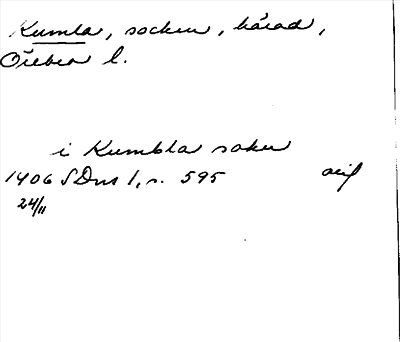 Kumla, socken, härad,
Örebro l.
i Kumbla sokn
1406 SDns 1, s. 595 avs
24/11